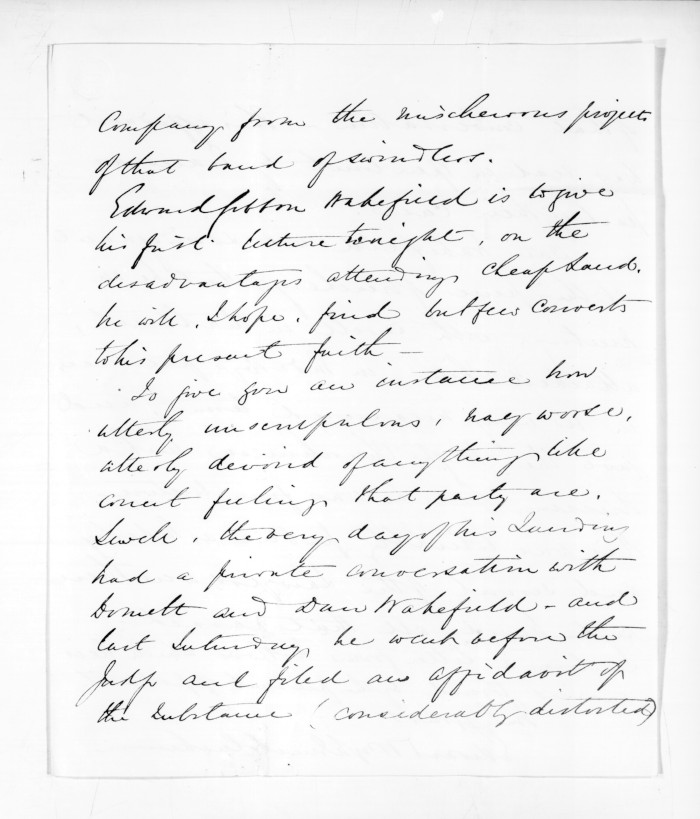 Company from the mischevous projects
of that band of swindlers.
Edward Gibbon Wakefield is to give
his first lecture tonight, on the
disadvantages attending cheap Land.
he will, I hope, find but few Converts
to his present faith —
To give you an instance how
utterly unscrupulous, nay worse,
utterly devoid of anything like
correct feeling that party are.
Sewell, the very day of his Landing
had a private conversation with
Domett and Dan Wakefield - and
last Saturday he went before the
Judge and filed an affidavit of
the Substance (considerably distorted)